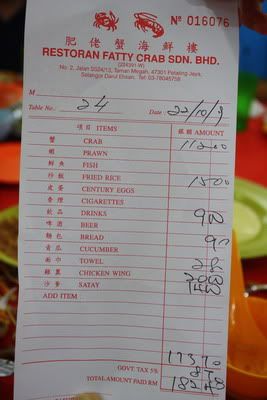 Nº 016076
肥佬蟹海鮮樓
RESTORAN FATTY CRAB SDN. BHD.
No. 2, Jalan SS24/13, Taman Megah, 47301 Petaling Jaya.
Selangor Darul Ehsan. Tel: 03-78045758
M
Table No. 24 Date: 22/10/9
項目 ITEMS 銀額 AMOUNT
蟹 CRAB 11200
蝦 PRAWN
鮮魚 FISH
炒飯 FRIED RICE 1500
皮蛋 CENTURY EGGS
香煙 CIGARETTES
飲品 DRINKS 900
啤酒 BEER
麵包 BREAD 90
青瓜 CUCUMBER
面巾 TOWEL 280
雞翼 CHICKEN WING 2000
沙爹 SATAY 1400
ADD ITEM
17370
GOVT TAX 5% 87
TOTAL AMOUNT PAID RM 18240